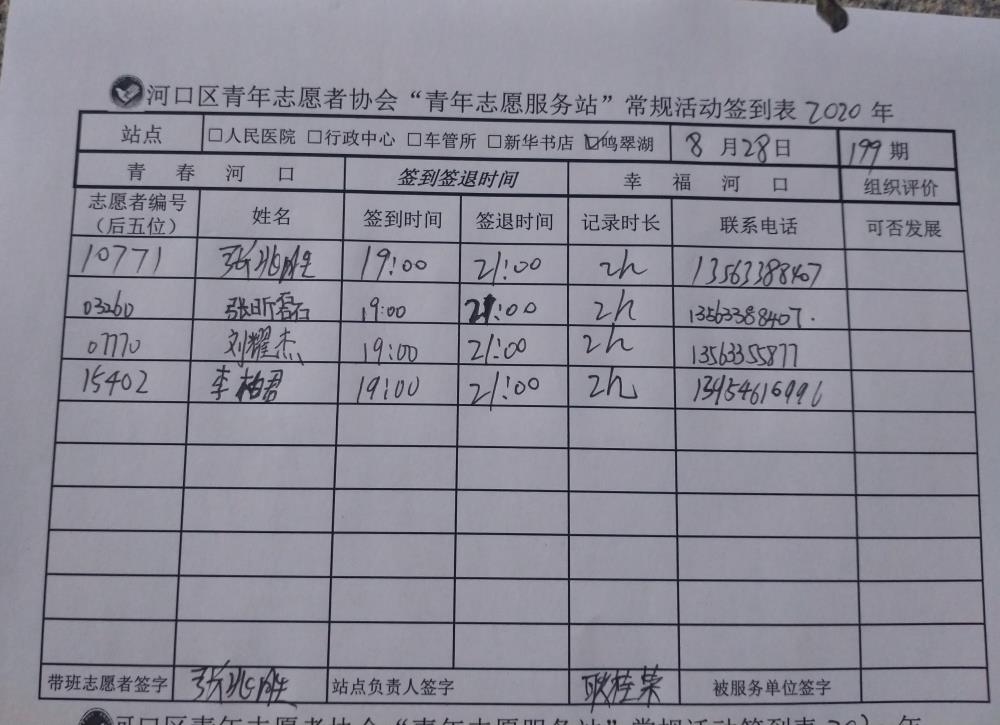 河口区青年志愿者协会“青年志愿服务站”常规活动签到表2020年
站点 □人民医院 □行政中心 □车管所 □新华书店 ☑鸣翠湖 8月28日 199期
青春河口 签到签退时间 幸福河口 组织评价
志愿者编号 姓名 签到时间 签退时间 记录时长 联系电话 可否发展
（后五位）
10771 张兆胜 19:00 21:00 2h 13563388407
03260 张昕磊 19:00 21:00 2h 13563388407.
07770 刘耀杰 19:00 21:00 2h 13563355877
15402 李柏君 19:00 21:00 2h
带班志愿者签字 张兆胜 站点负责人签字 耿桂荣 被服务单位签字
河口区青年志愿者协会“青年志愿服务站”常规活动签到表 年